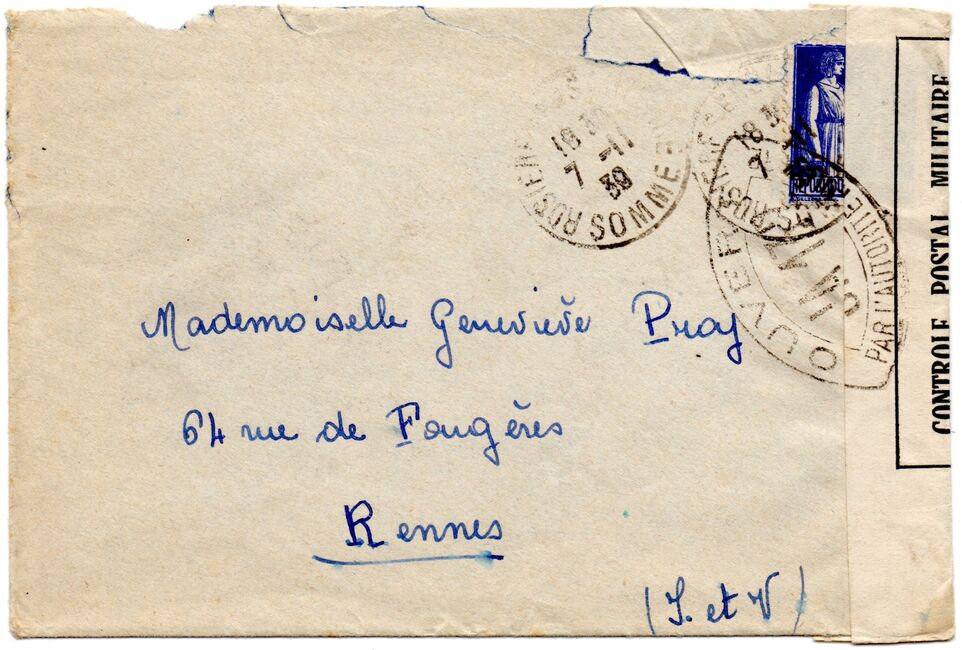 18 30
7 -11
39
ROSIERES SOMME
18 30
7 -11
OUVERT
PAR L'AUTORITE
CONTROLE POSTAL MILITAIRE
Mademoiselle Geneviève
64 rue de Fougères
Rennes
(I. et V)